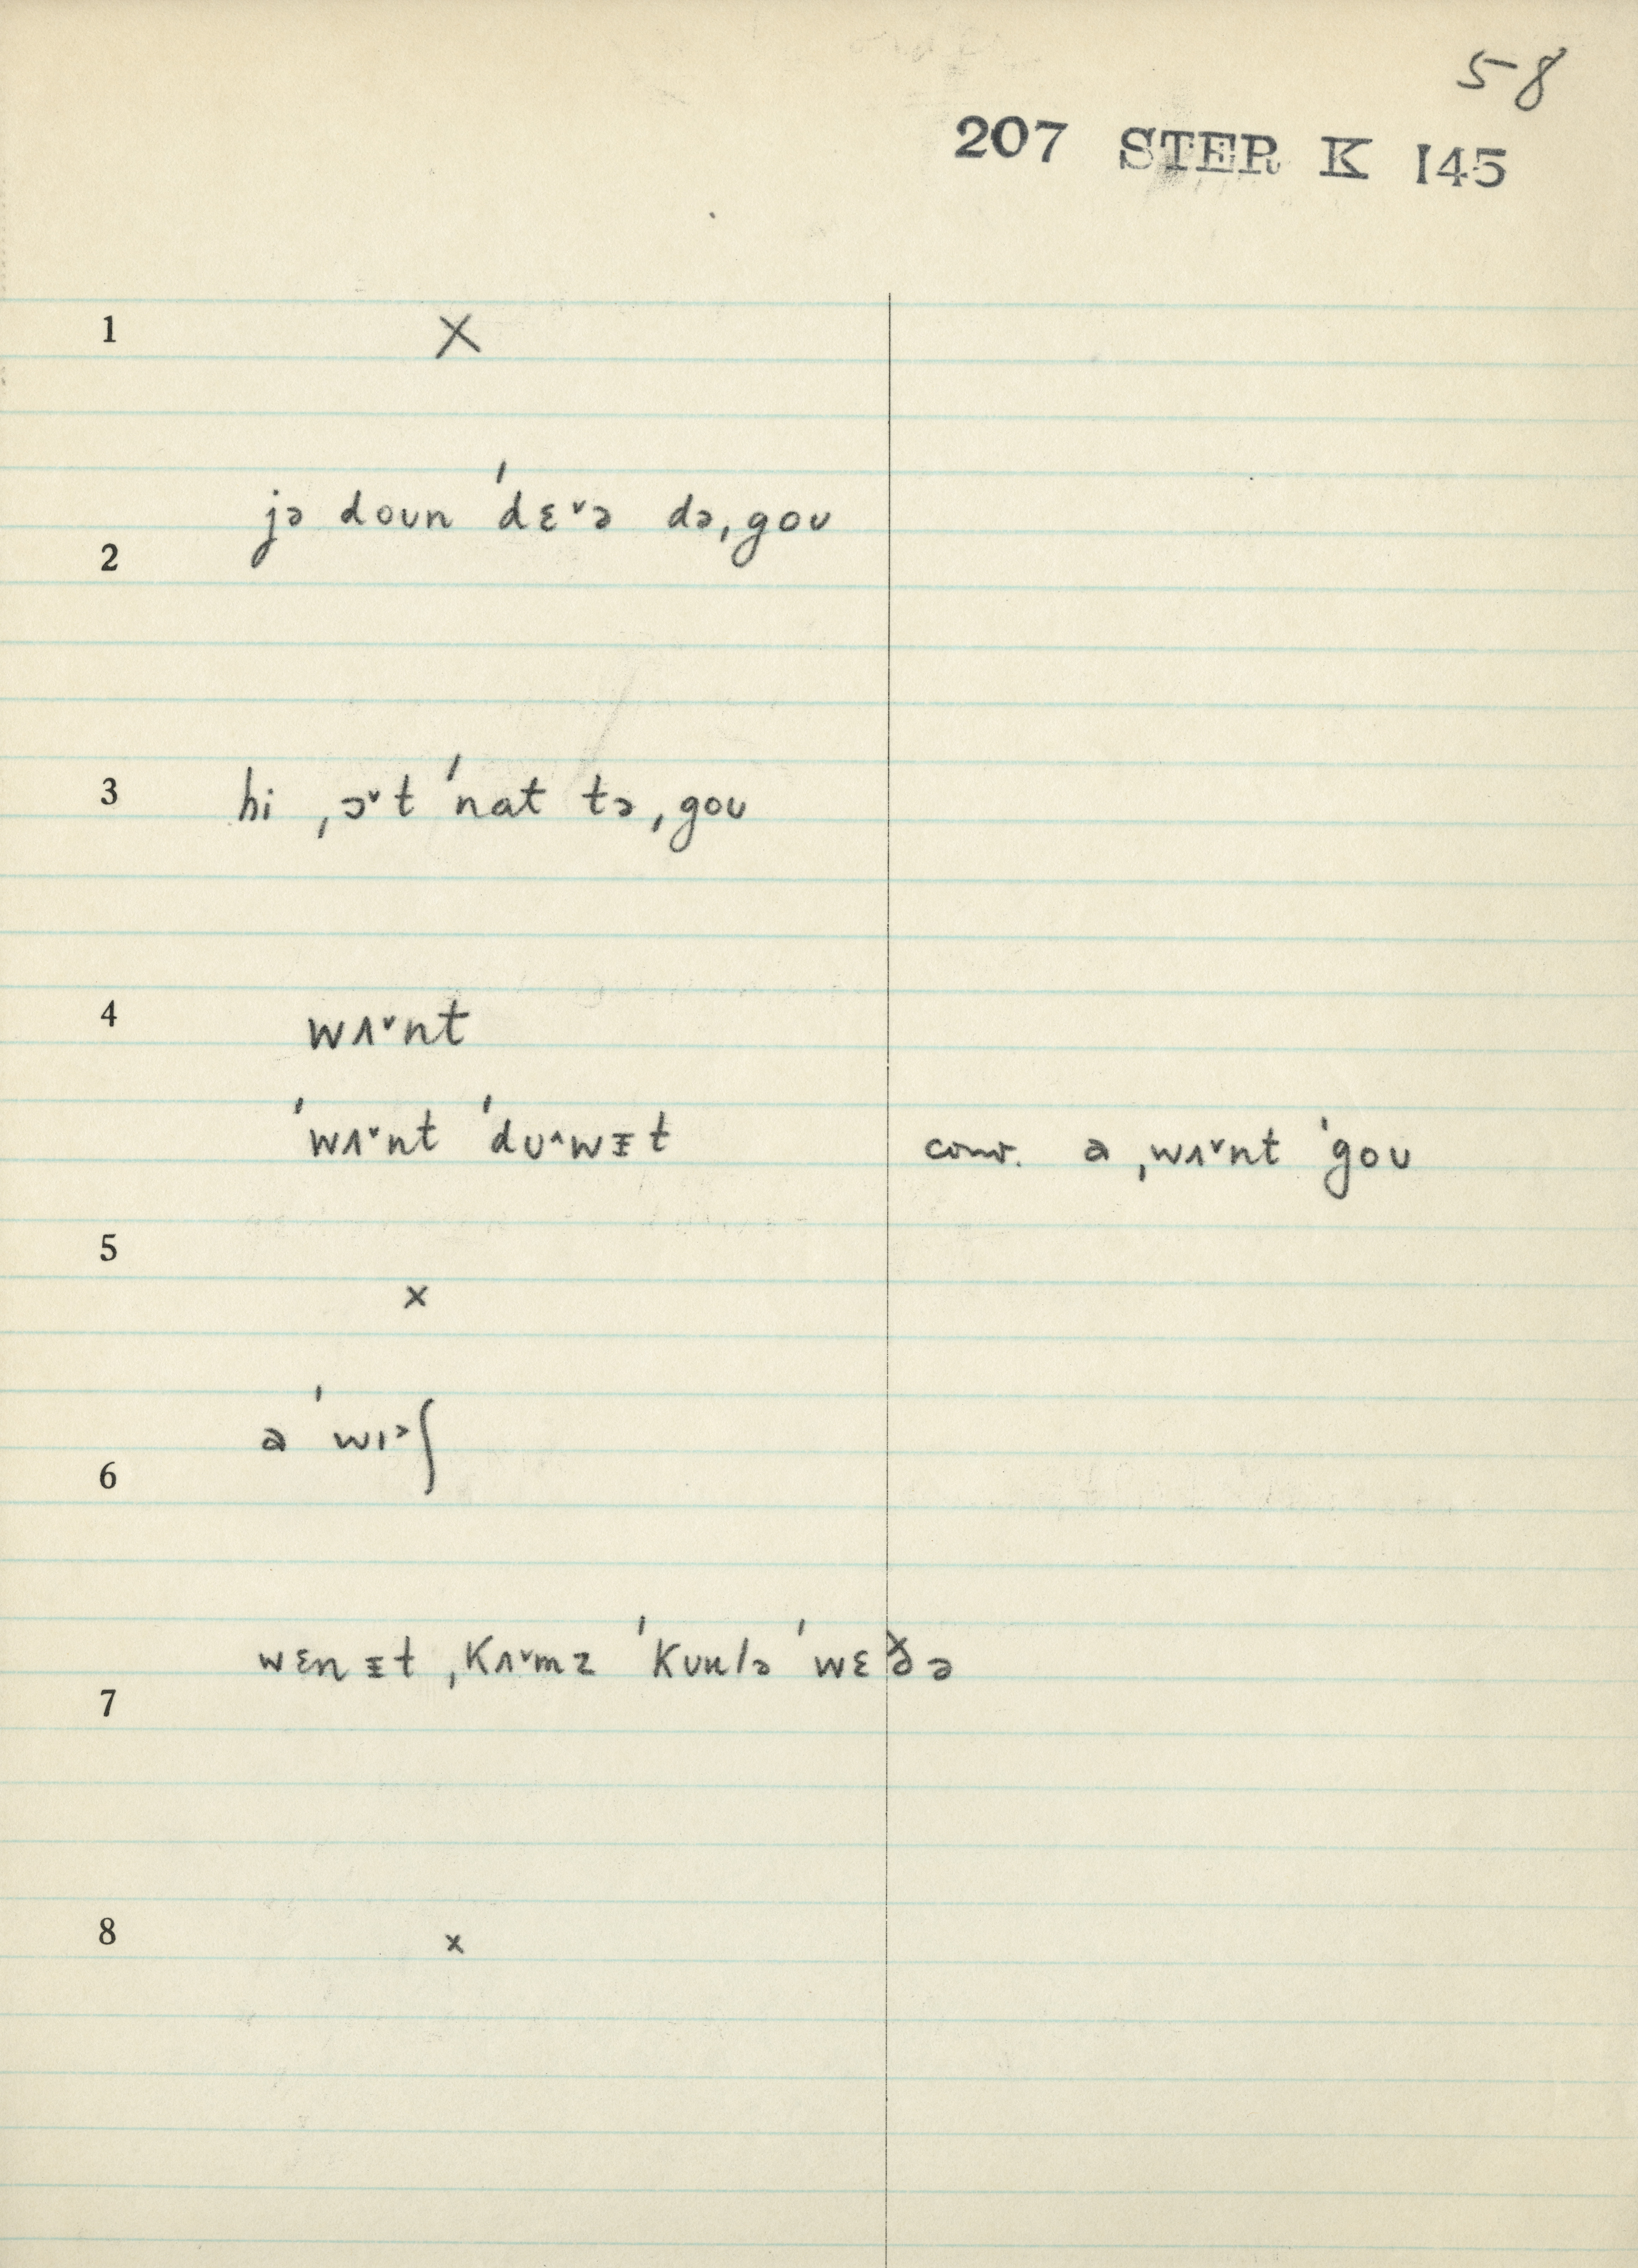 58
207 STER K 145
1 X
jə doʊn ˈdɛ˅ə də ˌgoʊ
2
3 hi ˌɔ˅t ˈnat tə ˌgoʊ
4 wʌ˅nt
ˈwʌ˅nt ˈdʊ˄wɪ̵t conv. a ˌwʌ˅nt ˈgoʊ
5
x
a ˈwɪ˃ʃ
6
wɛn ɪ̵t ˌkʌ˅mz ˈkʊʊlə ˈwɛðə
7
8 x